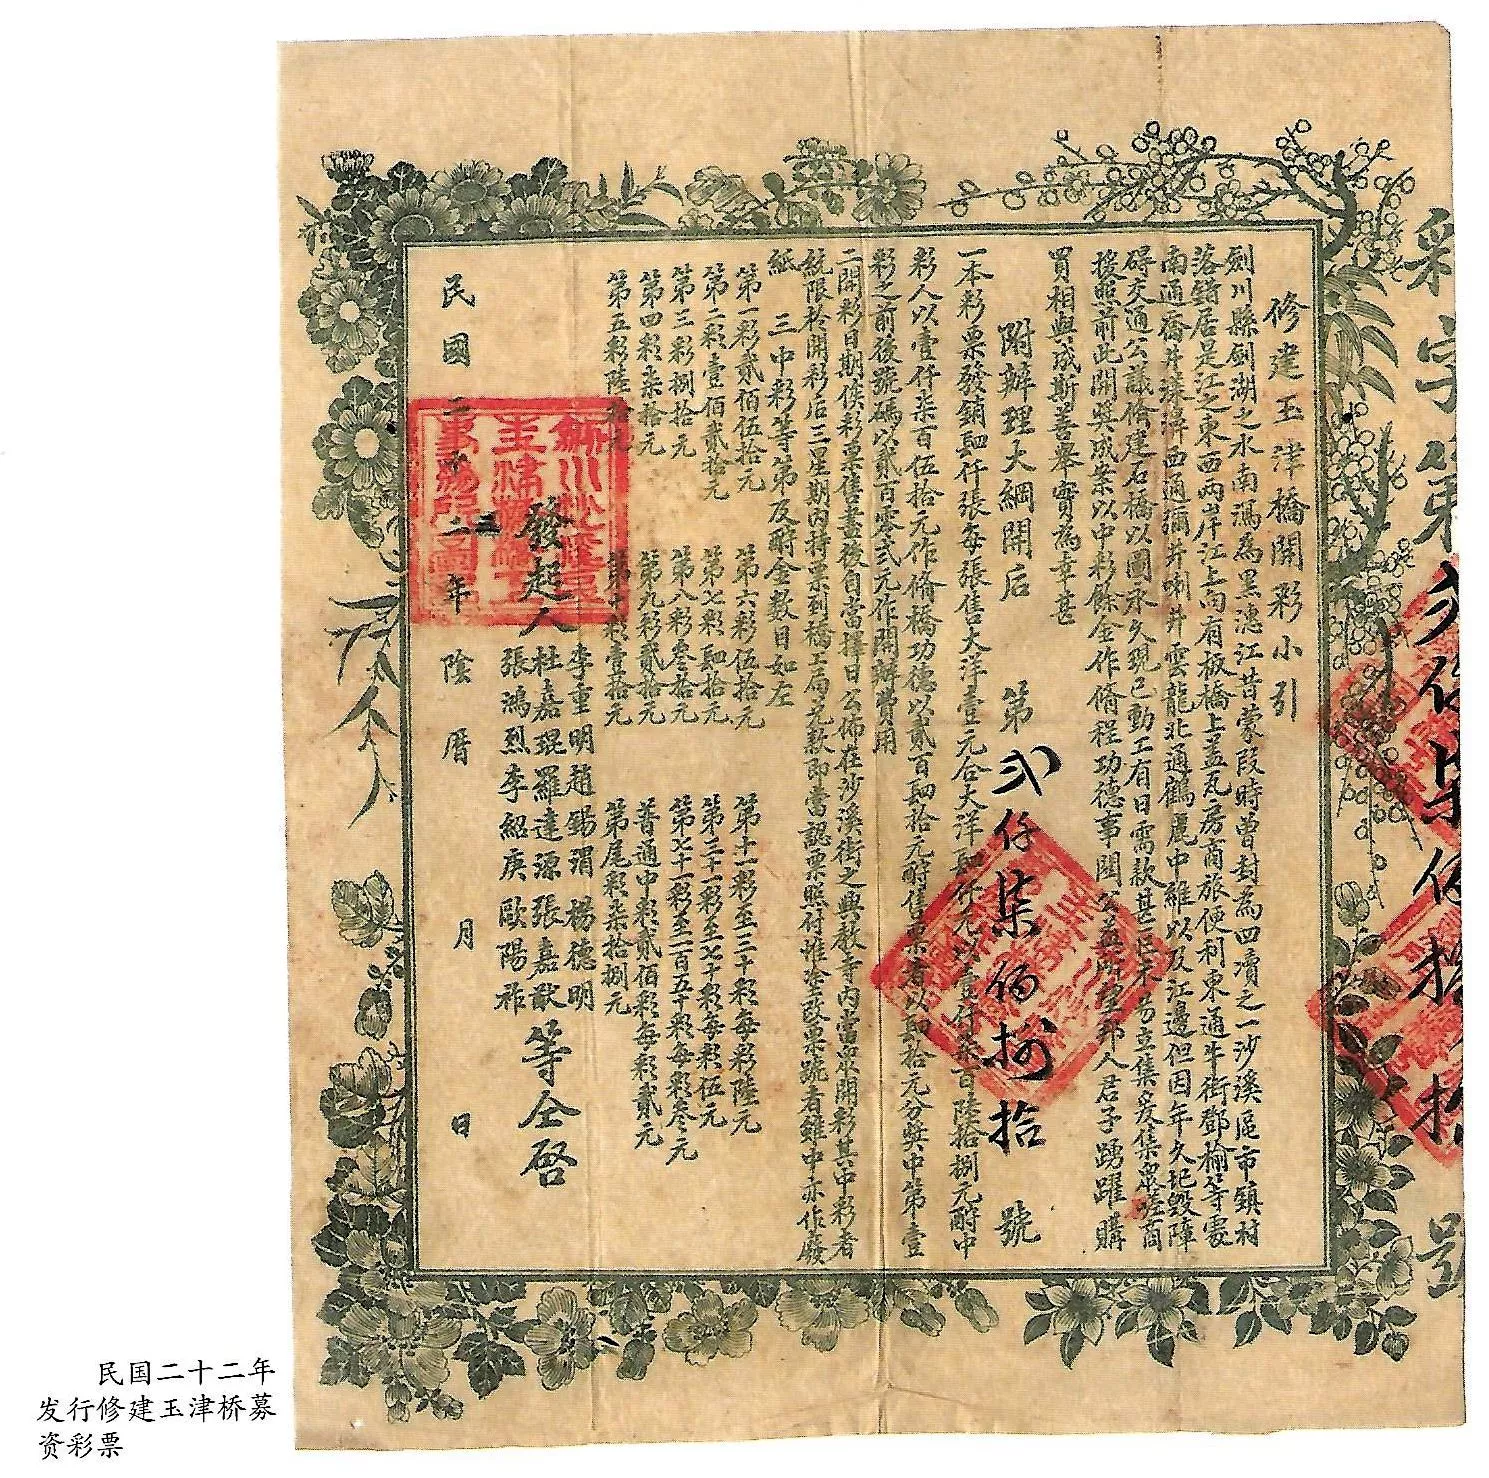 彩字第
貳仟柒佰捌拾
號
修建玉津橋開彩小引
劍川縣劍湖之水南瀉為黑潓江昔蒙段時曾封為四瀆之一沙溪區市鎮村
落錯居是江之東西兩岸江上向有板橋上盖瓦房商旅便利東通牛街鄧榆等處
南通喬井漾濞西通彌井喇井雲龍北通鶴麗中維以及江邊但因年久圯毁障
碍交通公議脩建石橋以圖永久現已動工有日需款甚
援照前此開奬成案以中彩餘金作脩程功德事關公益 人君子踴躍購
買相與成斯善舉實為幸甚
附辦理大綱開后
第貳仟柒佰捌拾號
一本彩票發銷肆仟張每張售大洋壹元合大洋肆仟元以壹仟柒百陸拾捌元酧中
彩人以壹仟柒百伍拾元作脩橋功德以貳百肆拾元酧售票者以肆拾元分奬中第壹
彩之前後號碼以貳百零弍元作開辦費用
二開彩日期俟彩票售盡後自當擇日公佈在沙溪街之興教寺内當衆開彩其中彩者
統限於開彩后三星期内持票到橋工局兑款即當認票照付惟塗改票號者雖中亦作廢
紙 三中彩等第及酧金數目如左
第一彩貳佰伍拾元 第六彩伍拾元 第十一彩至三十彩每彩陸元
第二彩壹佰貳拾元 第七彩肆拾元 第三十一彩至七十彩每彩伍元
第三彩捌拾元 第八彩叁拾元 第七十一彩至一百五十彩每彩叁元
第四彩柒拾元 第九彩貳拾元 普通中彩貳佰彩每彩貳元
第五彩陸拾元 第十彩壹拾元 第尾彩柒拾捌元
發起人
李重明趙錫渭楊德明
杜嘉琨羅達源張嘉猷
張鴻烈李紹庚歐陽祚
等仝啓
民國二十二年陰曆 月 日
民国二十二年
发行修建玉津桥募
资彩票